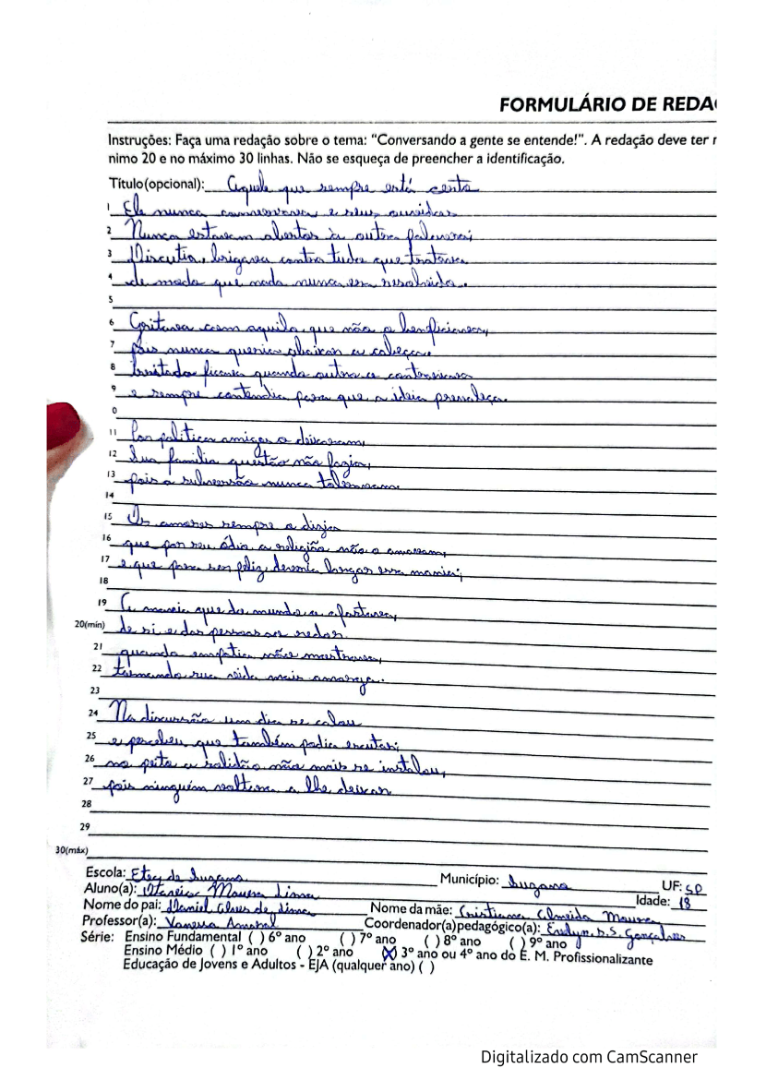 FORMULÁRIO DE REDA
Instruções: Faça uma redação sobre o tema: "Conversando a gente se entende!". A redação deve ter
nimo 20 e no máximo 30 linhas. Não se esqueça de preencher a identificação.
Título(opcional): Aquele que sempre está certo
1 Ele nunca conversava e seus ouvidos
2 Nunca estavam abertos à outra palavra;
3 Discutia, brigava contra tudo que tratava
4 de modo que nada nunca era resolvido.
5
6 Gritava com aquilo que não o beneficiava,
7 pois nunca queria abaixar a cabeça.
8 Irritado ficava quando outro o contrariava
9 e sempre contendia para que a ideia prevaleça.
0
11 Por política amigos o deixaram,
12 Sua família questão não fazia,
13 pois a subversão nunca toleraram.
14
15 Os amores sempre o dizia
16 que por seu ódio a religião não o amavam,
17 e que para ser feliz, deveria largar essa mania;
18
19 A mania que do mundo o afastava,
20(min) de si e das pessoas ao redor.
21 quando empatia não mostrava,
22 tornando sua vida mais amarga.
23
24 Na discussão um dia se calou
25 e percebeu que também podia escutar;
26 no peito a solidão não mais se instalou,
27 pois ninguém voltava a lhe deixar
28
29
30(máx)
Escola: Etec de Suzano Município: Suzano UF: SP
Aluno(a): Moura Lima Idade: 18
Nome do pai: Daniel Alves de Lima Nome da mãe: Cristiane Almeida Moura
Professor(a): Vanessa Coordenador(a)pedagógico(a): Evelyn. S. Gonçalves
Série: Ensino Fundamental ( ) 6º ano ( ) 7º ano ( ) 8º ano ( ) 9º ano
Ensino Médio ( ) 1º ano ( ) 2º ano (X) 3º ano ou 4º ano do E. M. Profissionalizante
Educação de Jovens e Adultos - EJA (qualquer ano) ( )
Digitalizado com CamScanner